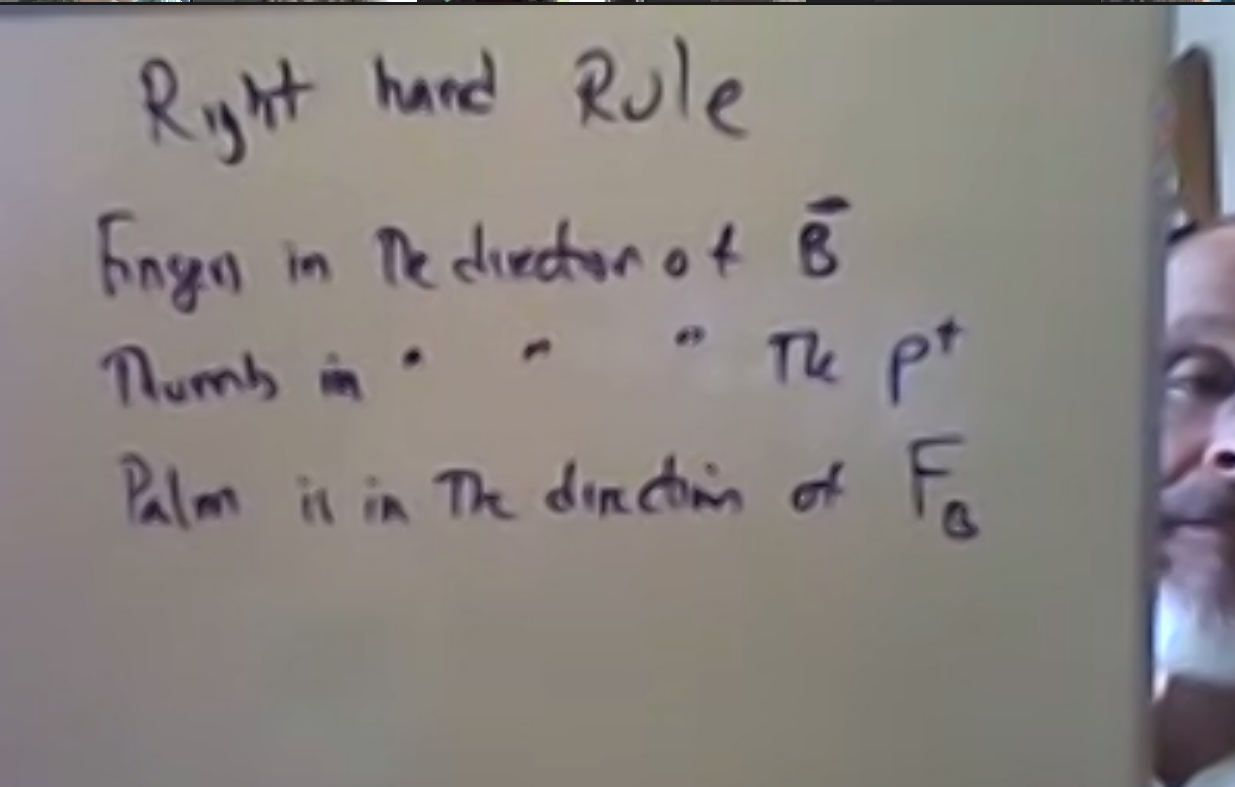 Right hand Rule
Fingers in The direction of B
Thumb in " " " The p+
Palm is in The direction of FB